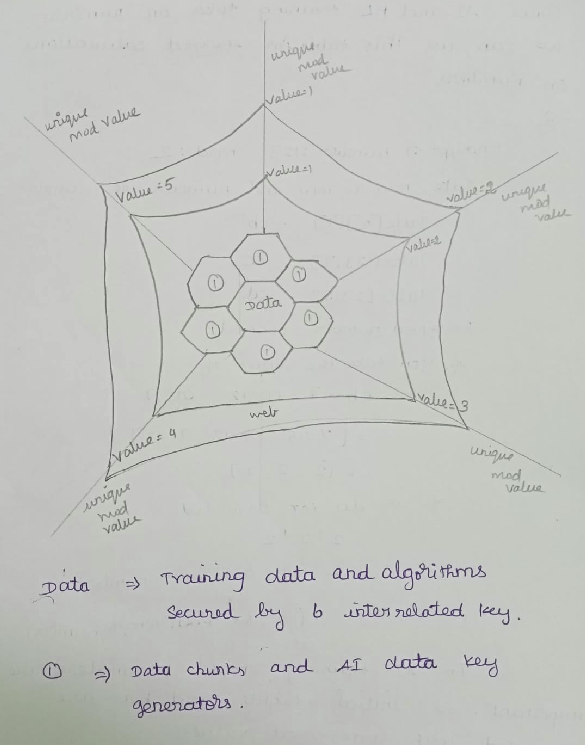 unique
mod
value
value=1
unique
mod value
value=1
value=5
value=2
unique
mod
value
value=2
①
①
①
Data
①
①
①
value=3
web
value=4
unique
mod
value
unique
mod
value
Data ⇒ Training data and algorithms
secured by 6 interrelated key.
① ⇒ Data chunks and AI data key
generators.